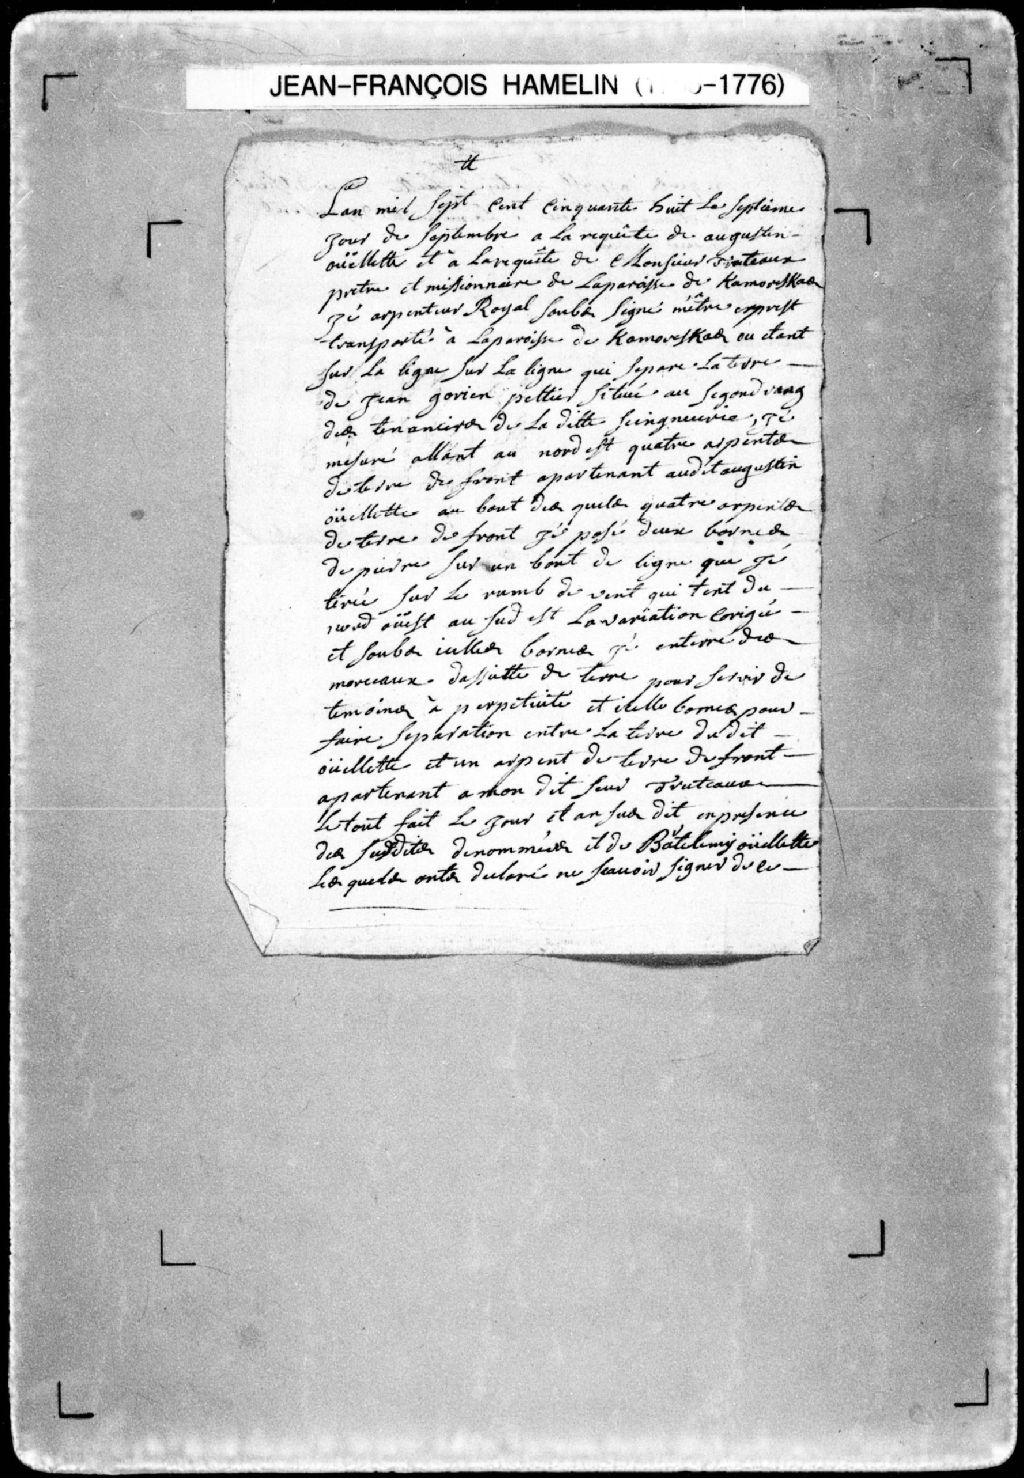 JEAN-FRANÇOIS HAMELIN ( -1776)
Lan mil sept cent cinquante huit Le septieme
jour de septembre a La requête de augustin
oüellette et à Larequête de Monsieur Truteaux
pretre et missionnaire de Laparoisse de Kamoreskas
jé arpenteur Royal soubs signé mêtre exprest
transporté à Laparoisse de Kamoreskas ou etant
sur La ligne sur La ligne qui separe La terre
de jean gorien peltier situé au segond rang
des tenancires de La ditte seingneurie, jé
mesuré allant au nordest quatre arpents
de terre de front apartenant audit augustin
oüellette au bout des quels quatre arpents
de terre de front jé posé deux bornes
de pierre sur un bout de ligne que jé
tirée sur Le rumb de vent qui tent du
nord oüest au sud est La variation corigé
et soubs icelles bornes jé enterré des
morceaux dassiette de terre pour servir de
temoins à perpetuité et icelle bornes pour
faire separation entre La terre du dit
oüellette et un arpent de terre de front
apartenant a mon dit sieur Truteaux
Le tout fait Le jour et an sus dit en presence
des susdits denommées et de Bartelemy oüellette
Les quels onts declaré ne scavoir signer de ce